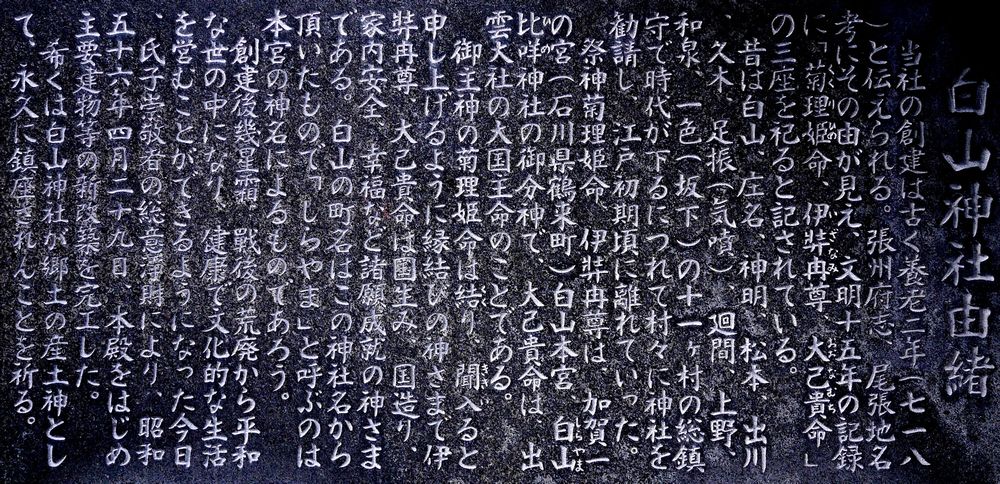 白山神社由緒
当社の創建は古く養老二年(七一八
)と伝えられる。張州府志、尾張地名
考にその由が見え、文明十五年の記録
に「菊理姫命、伊弉冉尊、大己貴命」
の三座を祀ると記されている。
昔は白山、庄名、神明、松本、出川
、久木、足振(気噴)、廻間、上野、
和泉、一色(坂下)の十一ヶ村の総鎮
守で時代が下るにつれて村々に神社を
勧請し、江戸初期頃に離れていった。
祭神菊理姫命、伊弉冉尊は、加賀一
の宮(石川県鶴来町)白山本宮、白山
比咩神社の御分神で、大己貴命は、出
雲大社の大国主命のことである。
御主神の菊理姫命は結り、聞入ると
申し上げるように縁結びの神さまで伊
弉冉尊、大己貴命は国生み、国造り、
家内安全、幸福など諸願成就の神さま
である。白山の町名はこの神社名から
頂いたもので「しらやま」と呼ぶのは
本宮の神名によるものであろう。
創建後幾星霜、戦後の荒廃から平和
な世の中になり、健康で文化的な生活
を営むことができるようになった今日
、氏子崇敬者の総意浄財により、昭和
五十六年四月二十九日、本殿をはじめ
主要建物等の新改築を完工した。
希くは白山神社が郷土の産土神とし
て、永久に鎮座されんことを祈る。